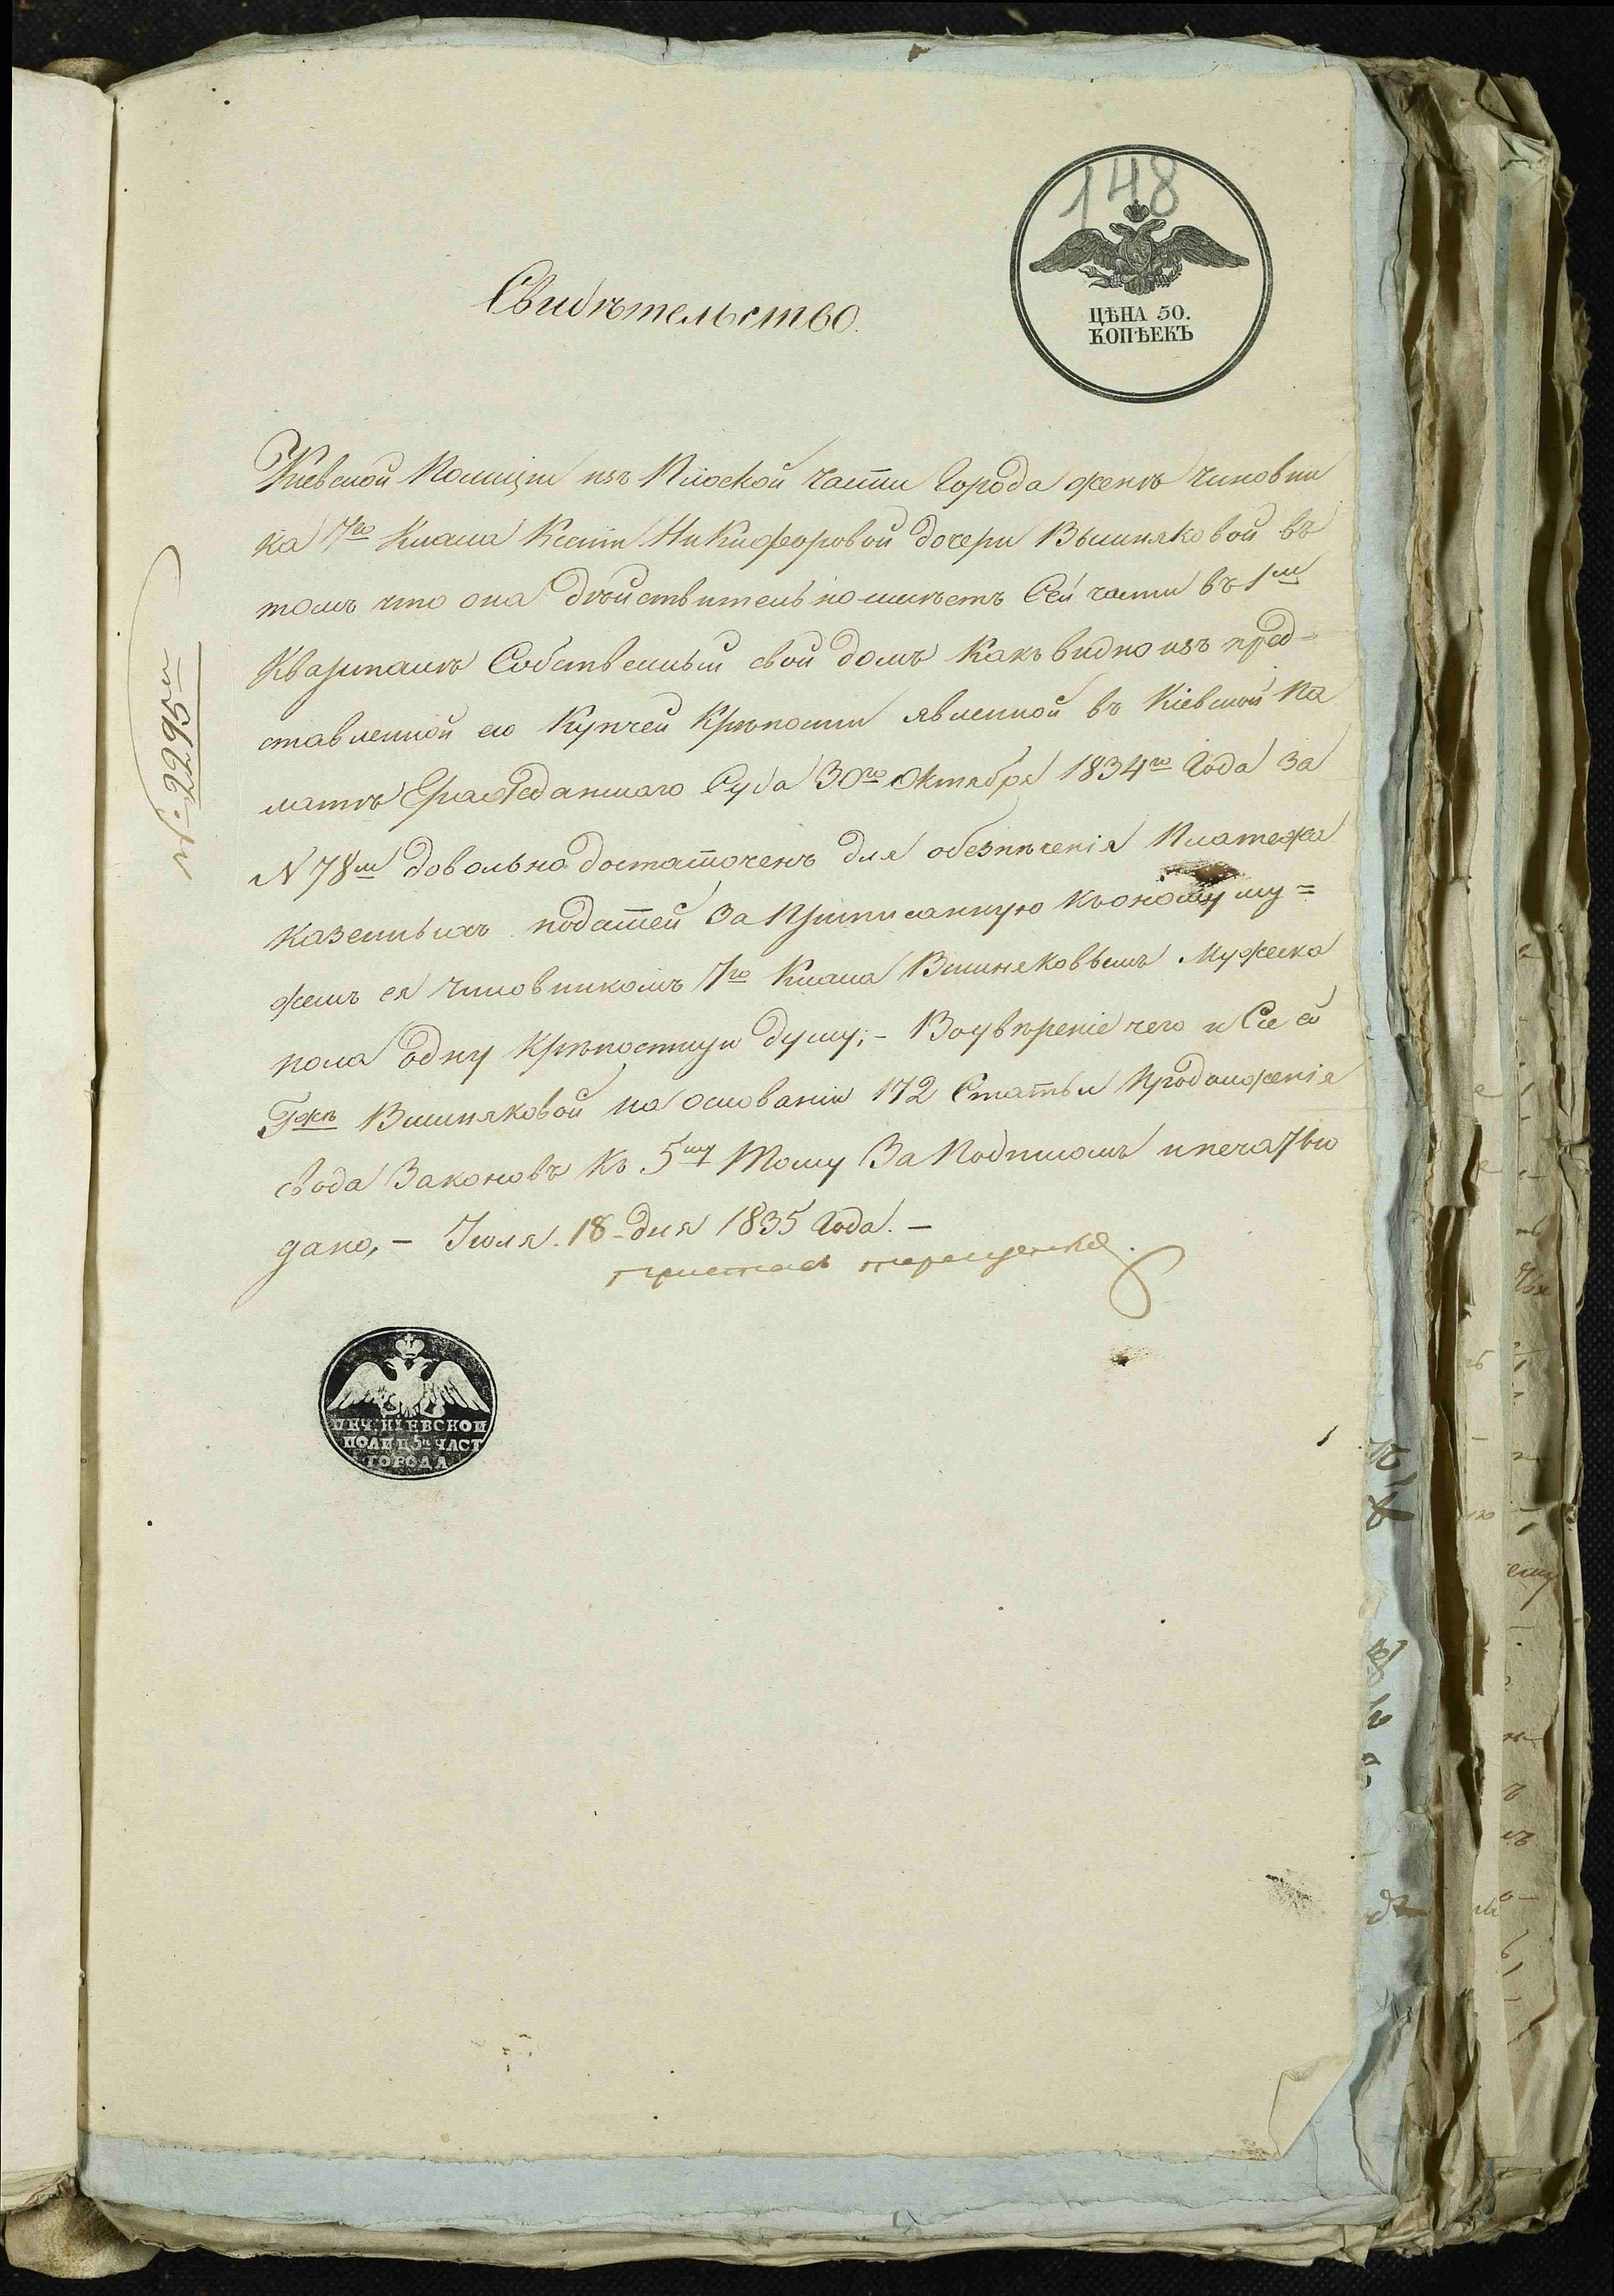 148
ЦѢНА 50.
КОПѢЕКЪ
Свидѣтельство.
№ 2295й
Кіевской Полиціи изъ Плоской части Города женѣ чиновни
ка 7го Класа Ксеніи Никифоровой дочери Вышняковой въ
томъ что она дѣйствительно имѣетъ Сей части въ 1м
Кварталѣ Собственный свой домъ Какъ видно изъ пред-
ставленной ею Купчей Крѣпости явленной въ Кіевской Па
латѣ Гражданскаго Суда 30го Октября 1834го Года За
N 78м довольно достаточенъ для обезпѣченія Платежа
казенныхъ податей За Приписанную къ оному му=
жемъ ея чиновникомъ 7го Класа Вишняковымъ Мужеска
пола одну крѣпостную душу; - Во увѣреніе чего и Сіе ей
Гжѣ Вишняковой на основаніи 172 Статьи Продолженія
свода Законовъ къ 5му Тому За Подписомъ и печатью
дано, - Іюля 18 дня 1835 Года. -
Приставъ Терещенко.
ПЕЧ. КІЕВСКОЙ
ПОЛИЦ 5й ЧАСТ
ГОРОДА